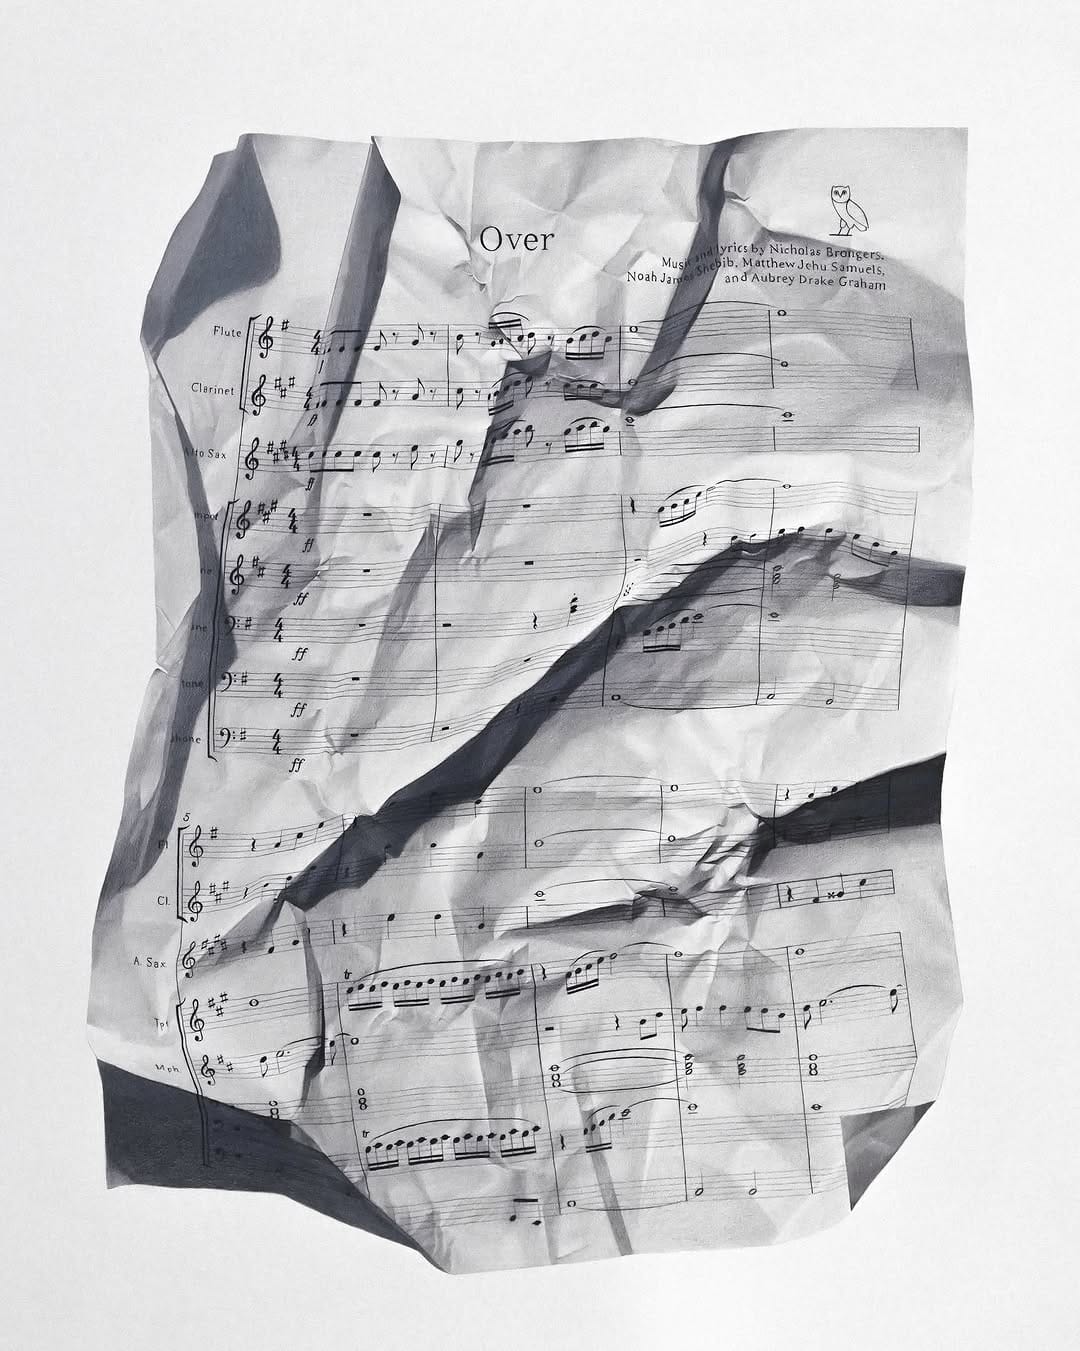 Over
Music and lyrics by Nicholas Brongers.
Noah James Shebib, Matthew Jehu Samuels,
and Aubrey Drake Graham
Flute
Clarinet
Alto Sax
ff
ff
ff
ff
ff
ff
ff
5
Fl
Cl.
A. Sax
tr
Tpt
Mph
tr